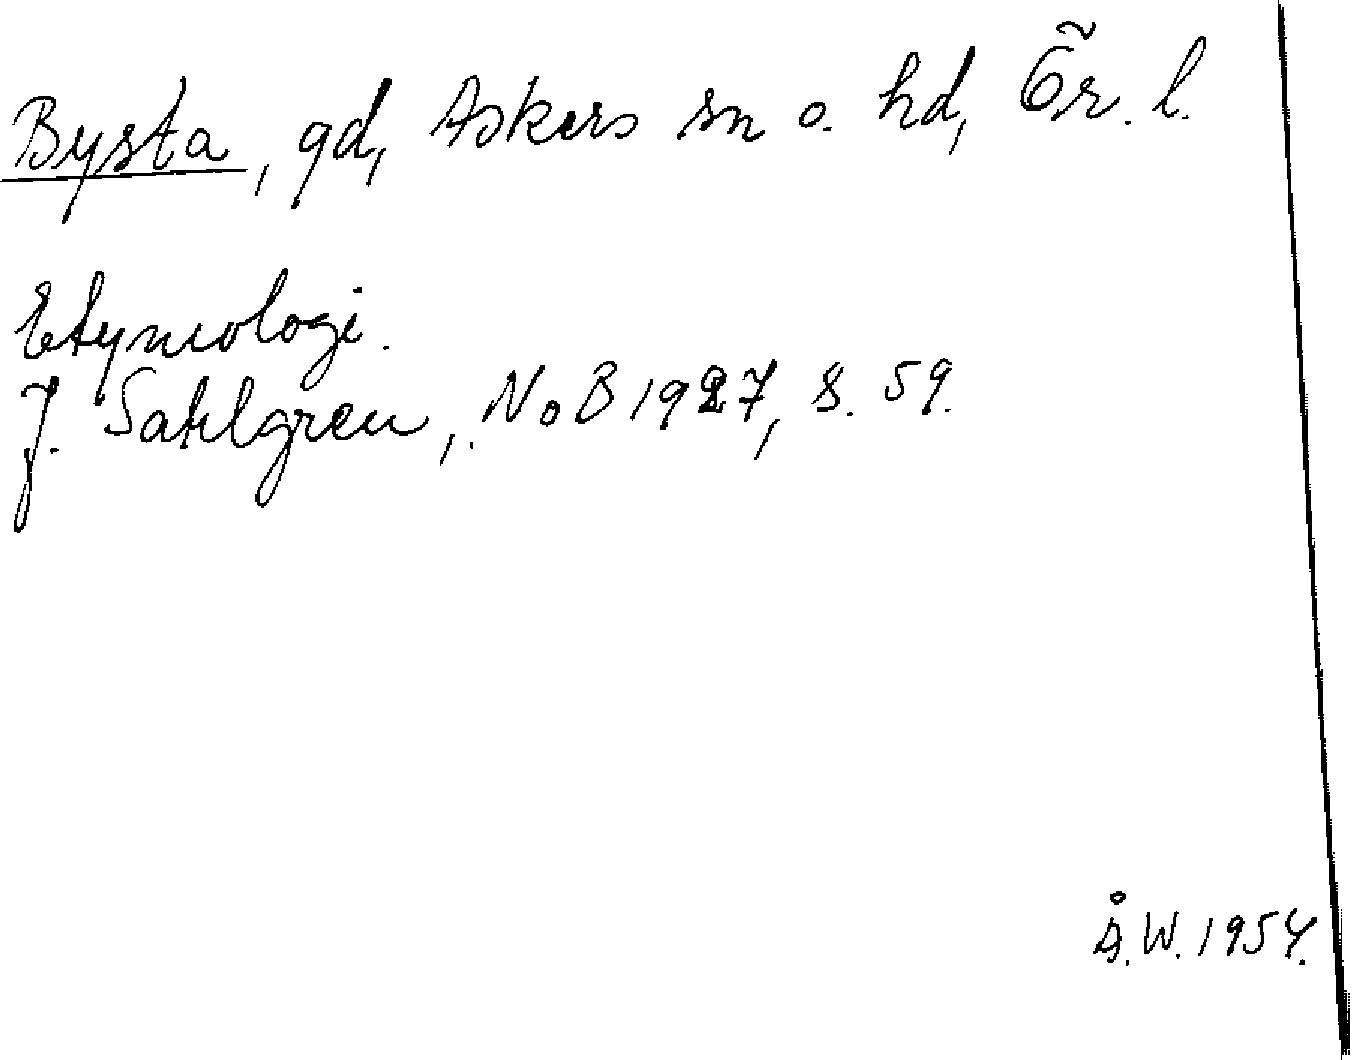 Bysta, gd, Askers sn o. hd, Ör. l.
Etymologi.
J. Sahlgren, NoB 1927, s. 59.
Å.W. 1954.